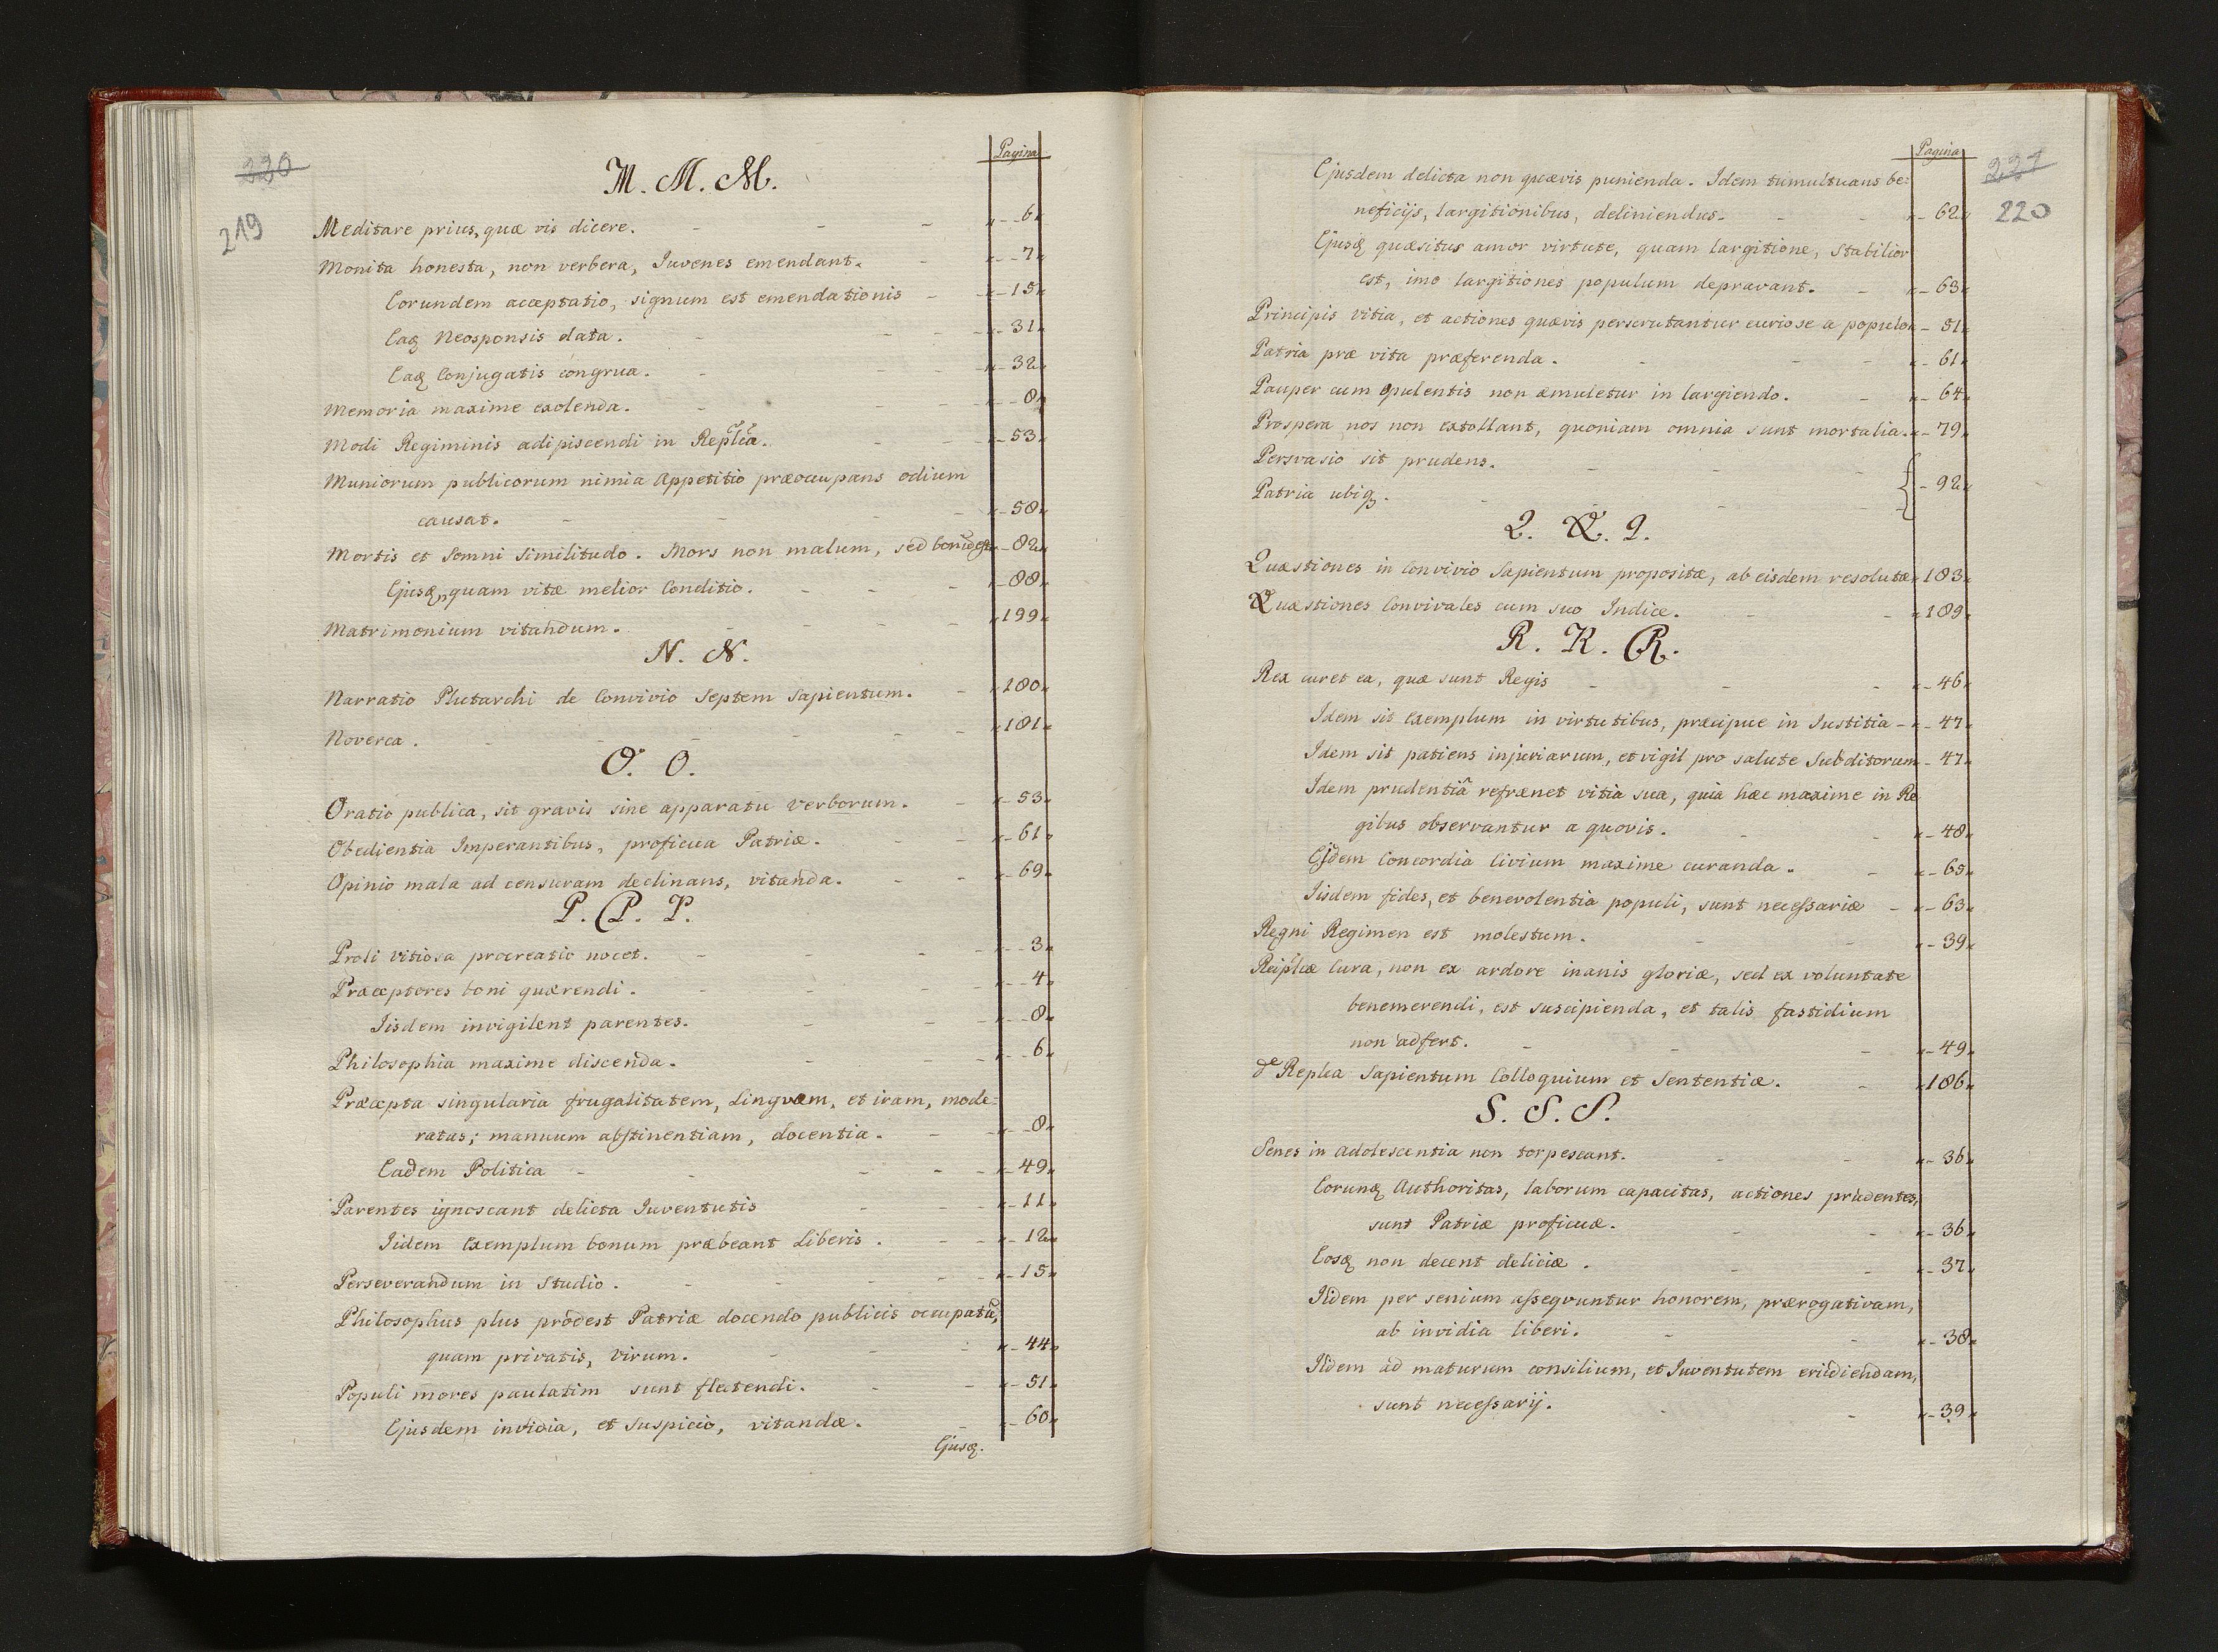 230
219
Pagina
M. M. M.
Meditare prius, quæ vis dicere. - - - „--6„
Monita honesta, non verbera, Iuvenes emendant. - „--7„
Eorundem acceptatio, signum est emendationis - „-15„
Eaq; Neosponsis data. - - - „-31„
Eaq; Conjugatis congrua. - - - „-32„
Memoria maxime excolenda. - - - „--8„
Modi Regiminis adipiscendi in Replca. - - „-53„
Muniorum publicorum nimia Appetitio præoccupans odium
causat. - - - - „-58„
Mortis et Somni Similitudo. Mors non malum, sed bonũ est „-82„
Ejusq;, quam vitæ melior Conditio. - - - „-88„
Matrimonium vitandum. - - - - „199„
N. N.
Narratio Plutarchi de Convivio Septem Sapientum. - „180„
Noverca. - - - - - „181„
O. O.
Oratio publica, sit gravis sine apparatu verborum. - „-53„
Obedientia Imperantibus, proficua Patriæ. - - „-61„
Opinio mala ad censuram declinans, vitanda. - - „-69„
P. P. P.
Proli vitiosa procreatio nocet. - - - „--3„
Præceptores boni quærendi. - - - „--4„
Iisdem invigilent parentes. - - - „--8„
Philosophia maxime discenda. - - - „--6„
Præcepta singularia frugalitatem, Lingvam, et iram, mode=
ratas; manuum abstinentiam, docentia. - „--8„
Eadem Politica - - - - „-49„
Parentes ignoscant delicta Iuventutis - - „-11„
Iidem Exemplum bonum præbeant Liberis. - - „-12„
Perseverandum in Studio. - - - - „-15„
Philosophus plus prodest Patriæ docendo publicis occupatũ,
quam privatis, virum. - - - „-44„
Populi mores paulatim sunt flectendi. - - „-51„
Ejusdem invidia, et Suspicio, vitandæ. - - 60„
Ejusq;
Pagina
221
220
Ejusdem delicta non quævis punienda. Idem tumultuans be=
neficijs, largitionibus, deliniendus. - - „-62„
Ejusq; quæsitus amor virtute, quam largitione, Stabilior
est, imo largitiones populum depravant. - „-63„
Principis vitia, et actiones quævis perscrutantur curiose a populo „-51„
Patria præ vita præferenda. - - - „-61„
Pauper cum opulentis non æmuletur in largiendo. - „-64„
Prospera nos non extollant, quoniam omnia sunt mortalia. „-79„
Persvasio sit prudens. - - -
Patria ubiq;. - - - { -92„
Q. Q. Q.
Quæstiones in Convivio Sapientum propositæ, ab eisdem resolutæ „183„
Quæstiones Convivales cum suo Indice. - - „189„
R. R. R.
Rex curet ea, quæ sunt Regis - - - „-46„
Idem sit Exemplum in virtutibus, præcipue in Iustitia - „-47„
Idem sit patiens injuriarum, et vigil pro salute Subditorum -47„
Idem prudentiâ refrænet vitia sua, quia hæc maxime in Re
gibus observantur a quovis. - - „-48„
Ejdem Concordia Civium maxime curanda. - „-65„
Iisdem fides, et benevolentia populi, sunt necessariæ - „-63„
Regni Regimen est molestum. - - „-39„
Reiplcæ Cura, non ex ardore inanis gloriæ, sed ex voluntate
benemerendi, est suscipienda, et talis fastidium
non adfert. - - - „-49„
de Replca Sapientum Colloquium et Sententiæ. - „186„
S. S. S.
Senes in Adolescentia non torpescant. - - „-36„
Eorunq; Authoritas, laborum capacitas, actiones prudentes,
sunt Patriæ proficuæ. - - „-36„
Eosq; non decent deliciæ. - - „-37„
Iidem per senium assequuntur honorem, prærogativam,
ab invidia liberi. - - „-38„
Iidem ad maturum consilium, et Iuventutem erudiendam,
sunt necessarij. - - „-39„